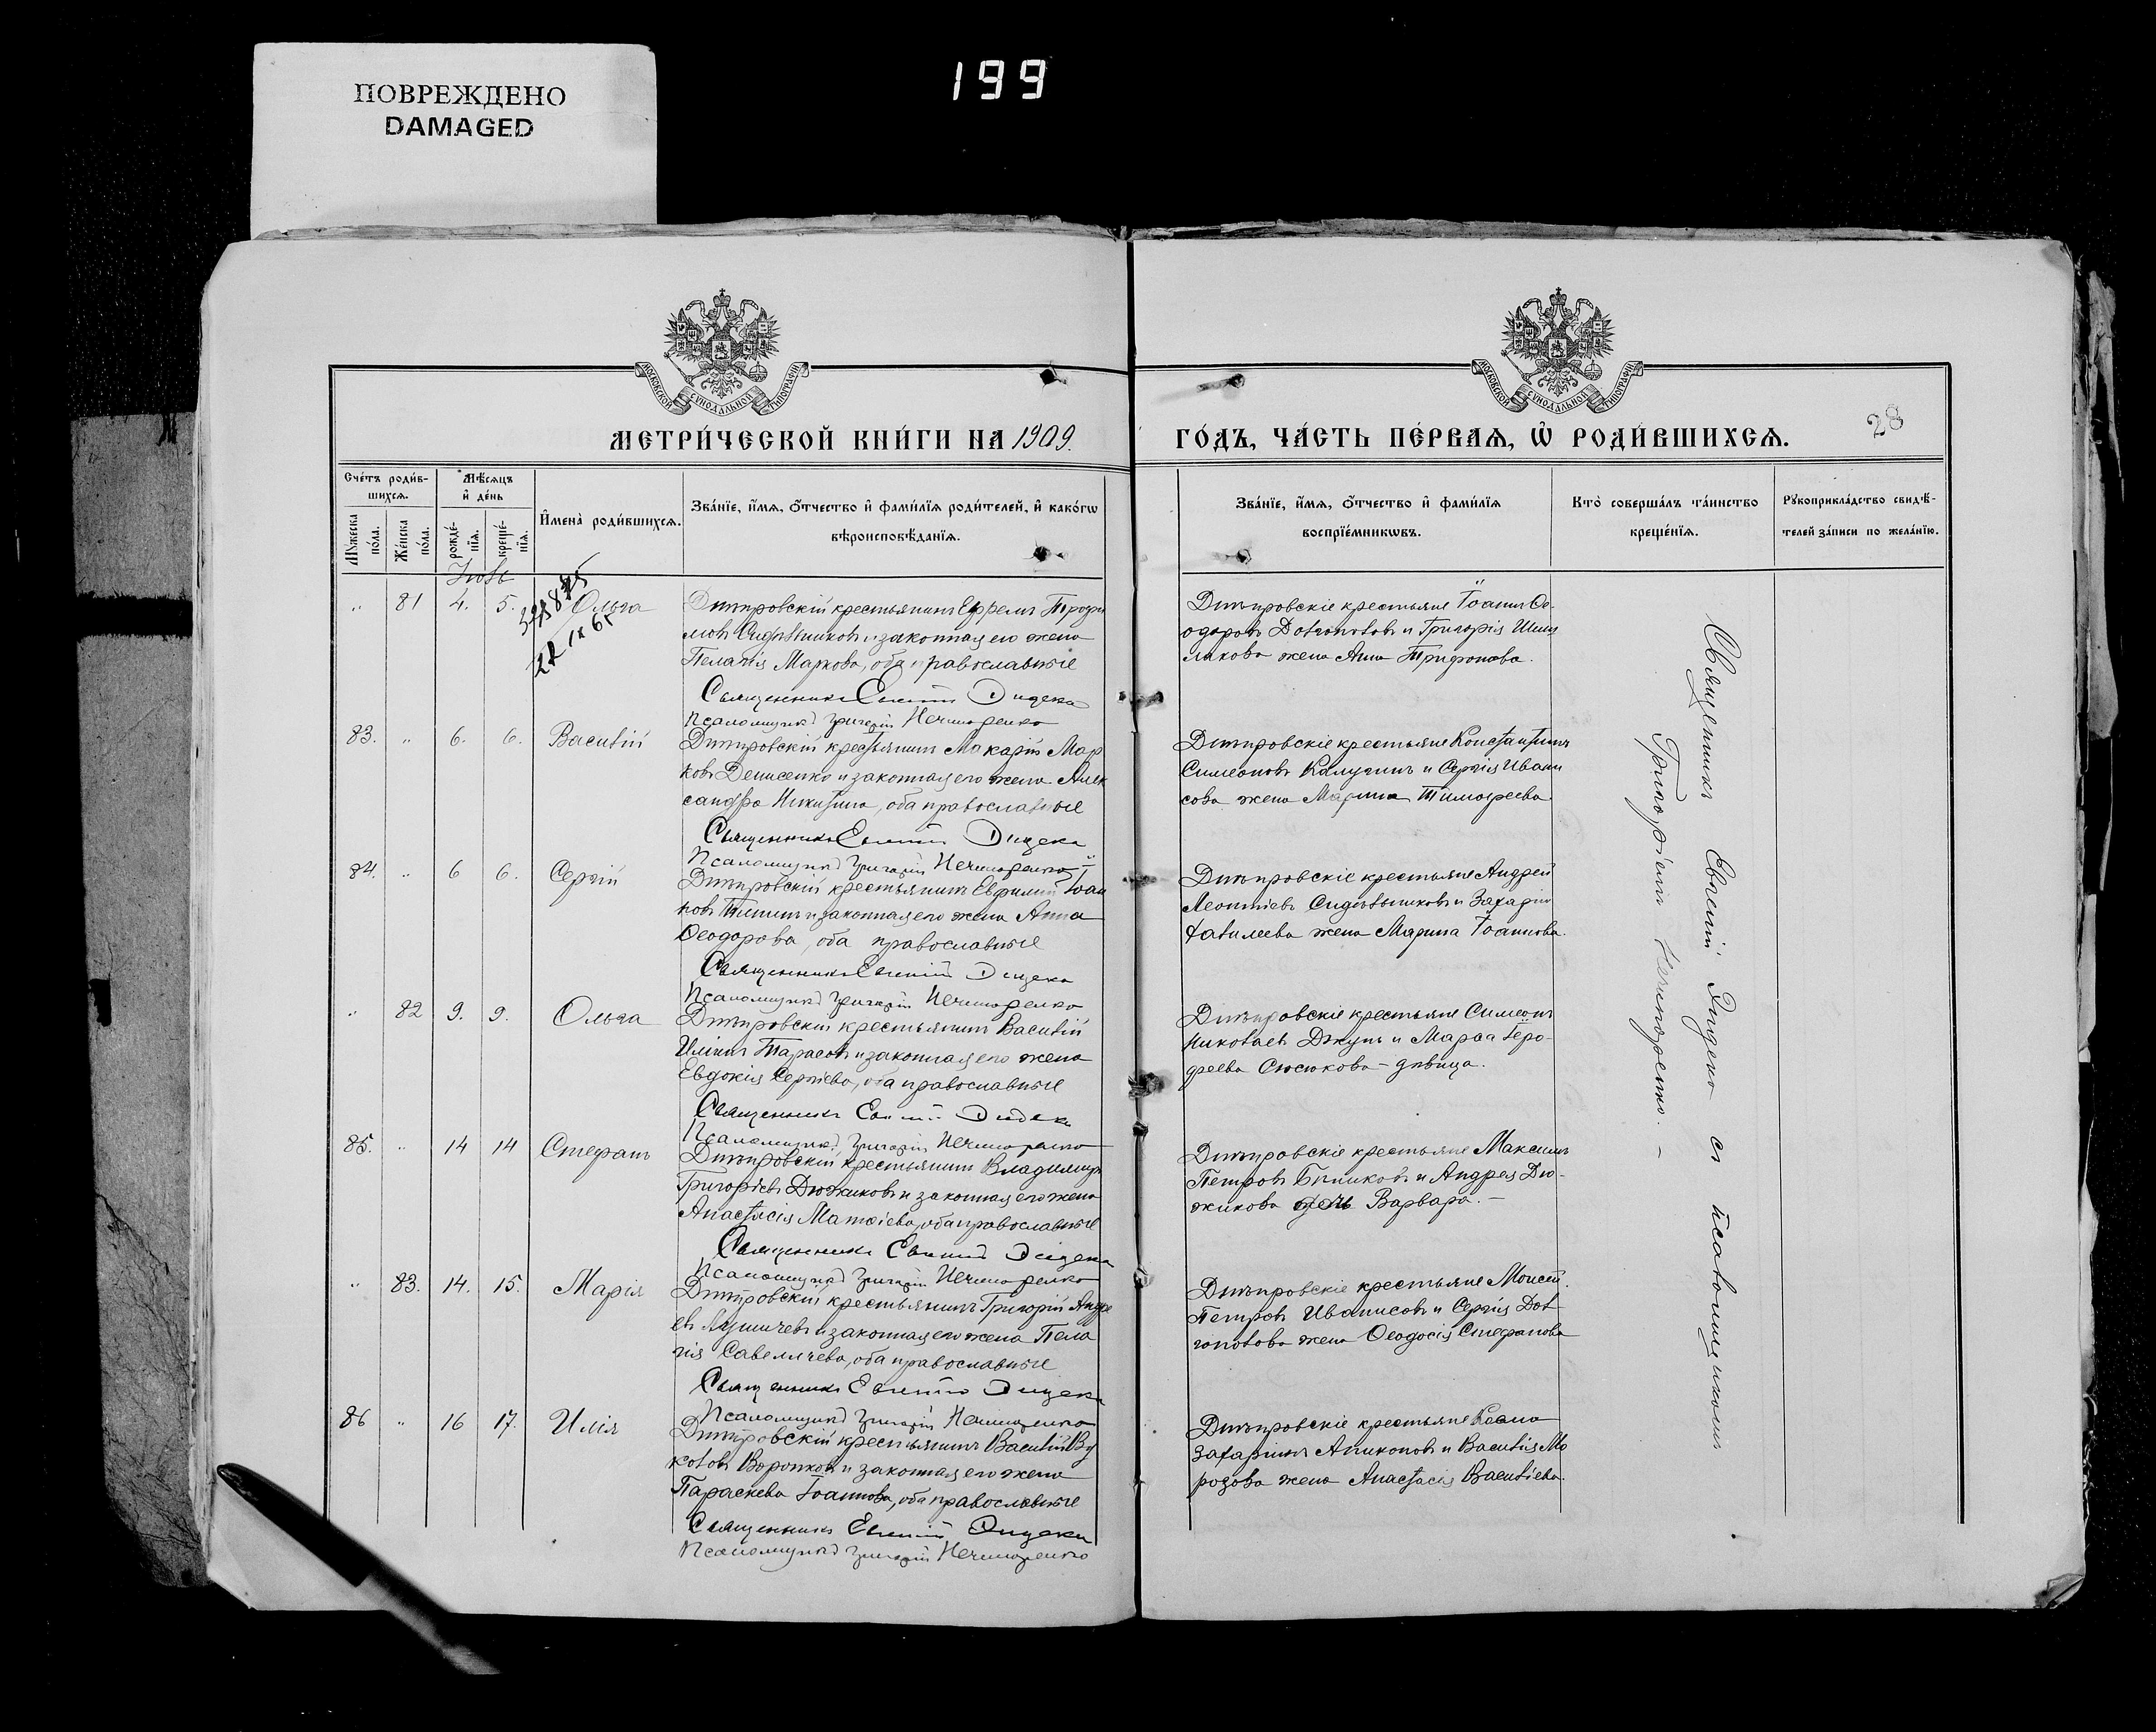 199
ПОВРЕЖДЕНО
DAMAGED
МОСКОВСКОЙ СѴНОДАЛЬНОЙ ТИПОГРАФІИ
МОСКОВСКОЙ СѴНОДАЛЬНОЙ ТИПОГРАФІИ
28
МЕТРИ́ЧЕСКОЙ КНИ́ГИ НА 1909.
ГО́ДЪ, ЧА́СТЬ ПЕ́РВАѦ, Ѡ҆ РОДИ́ВШИХСѦ.
Сче́тъ роди́в-
шихсѧ.
Мѣ́сѧцъ
и҆ де́нь
Мꙋ́жеска по́ла.
Же́нска по́ла.
рожде́-
нїѧ.
креще́-
нїѧ.
И҆мена̀ роди́вшихсѧ.
Зва́нїе, и҆́мѧ, ѻ҆́тчество и҆ фами́лїѧ роди́телей, и҆ како́гѡ
вѣроисповѣ́данїѧ.
Зва́нїе, и҆́мѧ, ѻ҆́тчество и҆ фами́лїѧ
воспрїе́мникѡвъ.
Кто̀ соверша́лъ та́инство
креще́нїѧ.
Рꙋкоприкла́дство свидѣ́-
телей за́писи по жела́нїю.
" 81 4. 5. Ольга
Днѣпровскій крестьянинъ Ефремъ Трофи
мовъ Сидѣльниковъ и законная его жена
Пелагія Маркова, оба православные
Священникъ Евгеній Дидека
Псаломщикъ Григорій Нечипоренко
Днѣпровскіе крестьяне Іоаннъ Ѳе-
одоровъ Долгополовъ и Григорія
жена Анна Трифонова.
83. " 6. 6. Василій
Днѣпровскій крестьянинъ Макарій Мар
ковъ Денисенко и законная его жена Алек
сандра Никитина, оба православные
Священникъ Евгеній Дидека
Псаломщикъ Григорій Нечипоренко
Днѣпровскіе крестьяне Константинъ
Симеоновъ Калугинъ и Сергія Ивани
сова жена Марина Тимофеева.
84. " 6 6. Сергій
Днѣпровскій крестьянинъ Евфимій Іоан
новъ и законная его жена Анна
Ѳеодорова, оба православные
Священникъ Евгеній Дидека
Псаломщикъ Григорій Нечипоренко
Днѣпровскіе крестьяне Андрей
Леонтіевъ Сидѣльниковъ и Захарія
жена Марина Іоаннова.
" 82 9. 9. Ольга
Днѣпровскій крестьянинъ Василій
Иліинъ Тарасовъ и законная его жена
Евдокія Сергіева, оба православные
Священникъ Евгеній Дидека
Псаломщикъ Григорій Нечипоренко
Днѣпровскіе крестьяне Симеонъ
Николаевъ и Марѳа Іеро-
феева Сюсюкова - дѣвица.
85. " 14 14 Стефанъ
Днѣпровскій крестьянинъ Владимиръ
Григорьевъ Дюжиковъ и законная его жена
Анастасія Матѳіева, оба православные
Священникъ Евгеній Дидека
Псаломщикъ Григорій Нечипоренко
Днѣпровскіе крестьяне Максимъ
Петровъ и Андрея Дю-
жикова дочь Варвара. -
" 83. 14. 15. Марія
Днѣпровскій крестьянинъ Григорій Андре
евъ и законная его жена Пела
гія Савеличева, оба православные
Священникъ Евгеній Дидека
Псаломщикъ Григорій Нечипоренко
Днѣпровскіе крестьяне Моисей
Петровъ Иванисовъ и Сергія Дол
гополова жена Ѳеодосія Стефанова
86 " 16 17. Илія
Днѣпровскій крестьянинъ Василій Ву
коловъ Воронковъ и законная его жена
Параскева Іоаннова, оба православные
Священникъ Евгеній Дидека
Псаломщикъ Григорій Нечипоренко
Днѣпровскіе крестьяне Косма
Захаріинъ Аниконовъ и Василія Мо
розова жена Анастасія Василіева.
Священникъ Евгеній Дидека съ псаломщикомъ
Григоріемъ Нечипоренко. -